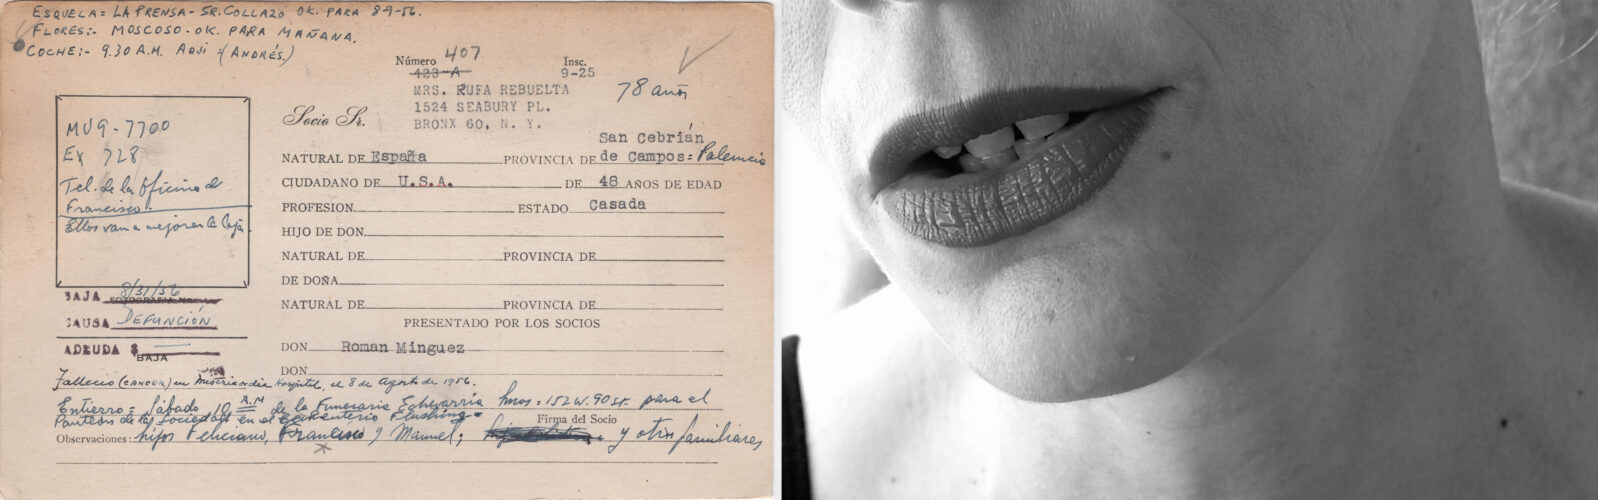 ESQUELA = LA PRENSA - SR. COLLAZO OK. PARA 8-9-56.
FLORES:- MOSCOSO - OK. PARA MAÑANA.
COCHE:- 9.30 A.M. AQUI - (ANDRÉS.)
Número 407 Insc.
423-A 9-25
MRS. RUFA REBUELTA 78 años
1524 SEABURY PL.
Socio Sr. BRONX 60, N. Y.
MU9-7700
Ex 728
Tel. de la Oficina de
Francisco.
Ellos van a mejorar la caja.
San Cebrián
NATURAL DE España PROVINCIA DE de Campos = Palencia
CIUDADANO DE U.S.A. DE 48 AÑOS DE EDAD
PROFESION ESTADO Casada
HIJO DE DON
NATURAL DE PROVINCIA DE
DE DOÑA
NATURAL DE PROVINCIA DE
PRESENTADO POR LOS SOCIOS
DON Roman Minguez
DON
BAJA 8/31/56
FOTOGRAFIA No.
CAUSA DEFUNCIÓN
ADEUDA $
BAJA
Fallecio (CANCER) en Misericordia Hospital, el 8 de Agosto de 1956.
Entierro = Sábado 10 A.M de la Funeraria Echevarría hnos = 152 W. 90 St. para el
Panteon de la Sociedad en el Cementerio Flushing =
Firma del Socio
Observaciones: hijos Feliciano, Francisco y Manuel; y otros familiares